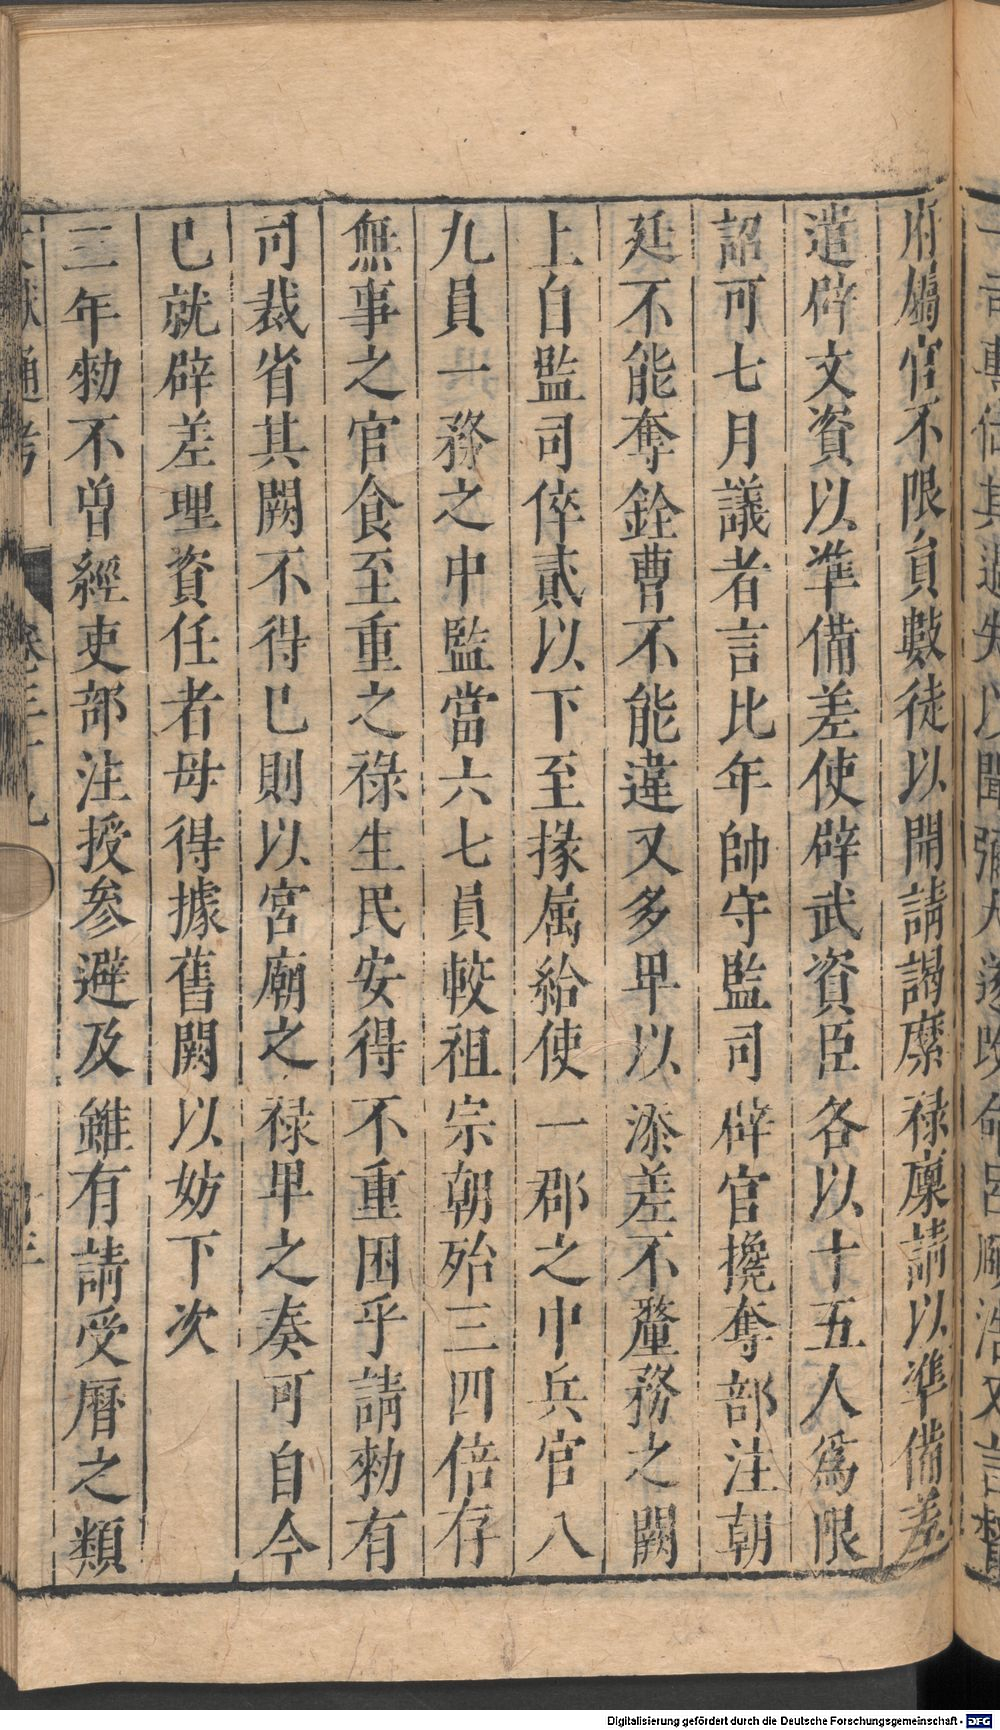 府屬官不限員數徒以開請謁縻祿廩請以準備差
遣辟文資以準備差使辟武資臣各以十五人爲限
詔可七月議者言比年帥守監司辟官攙奪部注朝
延不能奪銓曹不能違又多畀以添差不釐務之闕
上自監司倅貳以下至掾属給使一郡之中兵官八
九員一務之中監當六七員較祖宗朝殆三四倍存
無事之官食至重之祿生民安得不重困乎請勑有
司裁省其闕不得已則以宮廟之祿畀之奏可自今
已就辟差理資任者毋得據舊闕以妨下次
三年勑不曽經吏部注授参避及雖有請受曆之類
文獻通考 卷三十九
Digitalisierung gefördert durch die Deutsche Forschungsgemeinschaft - DFG